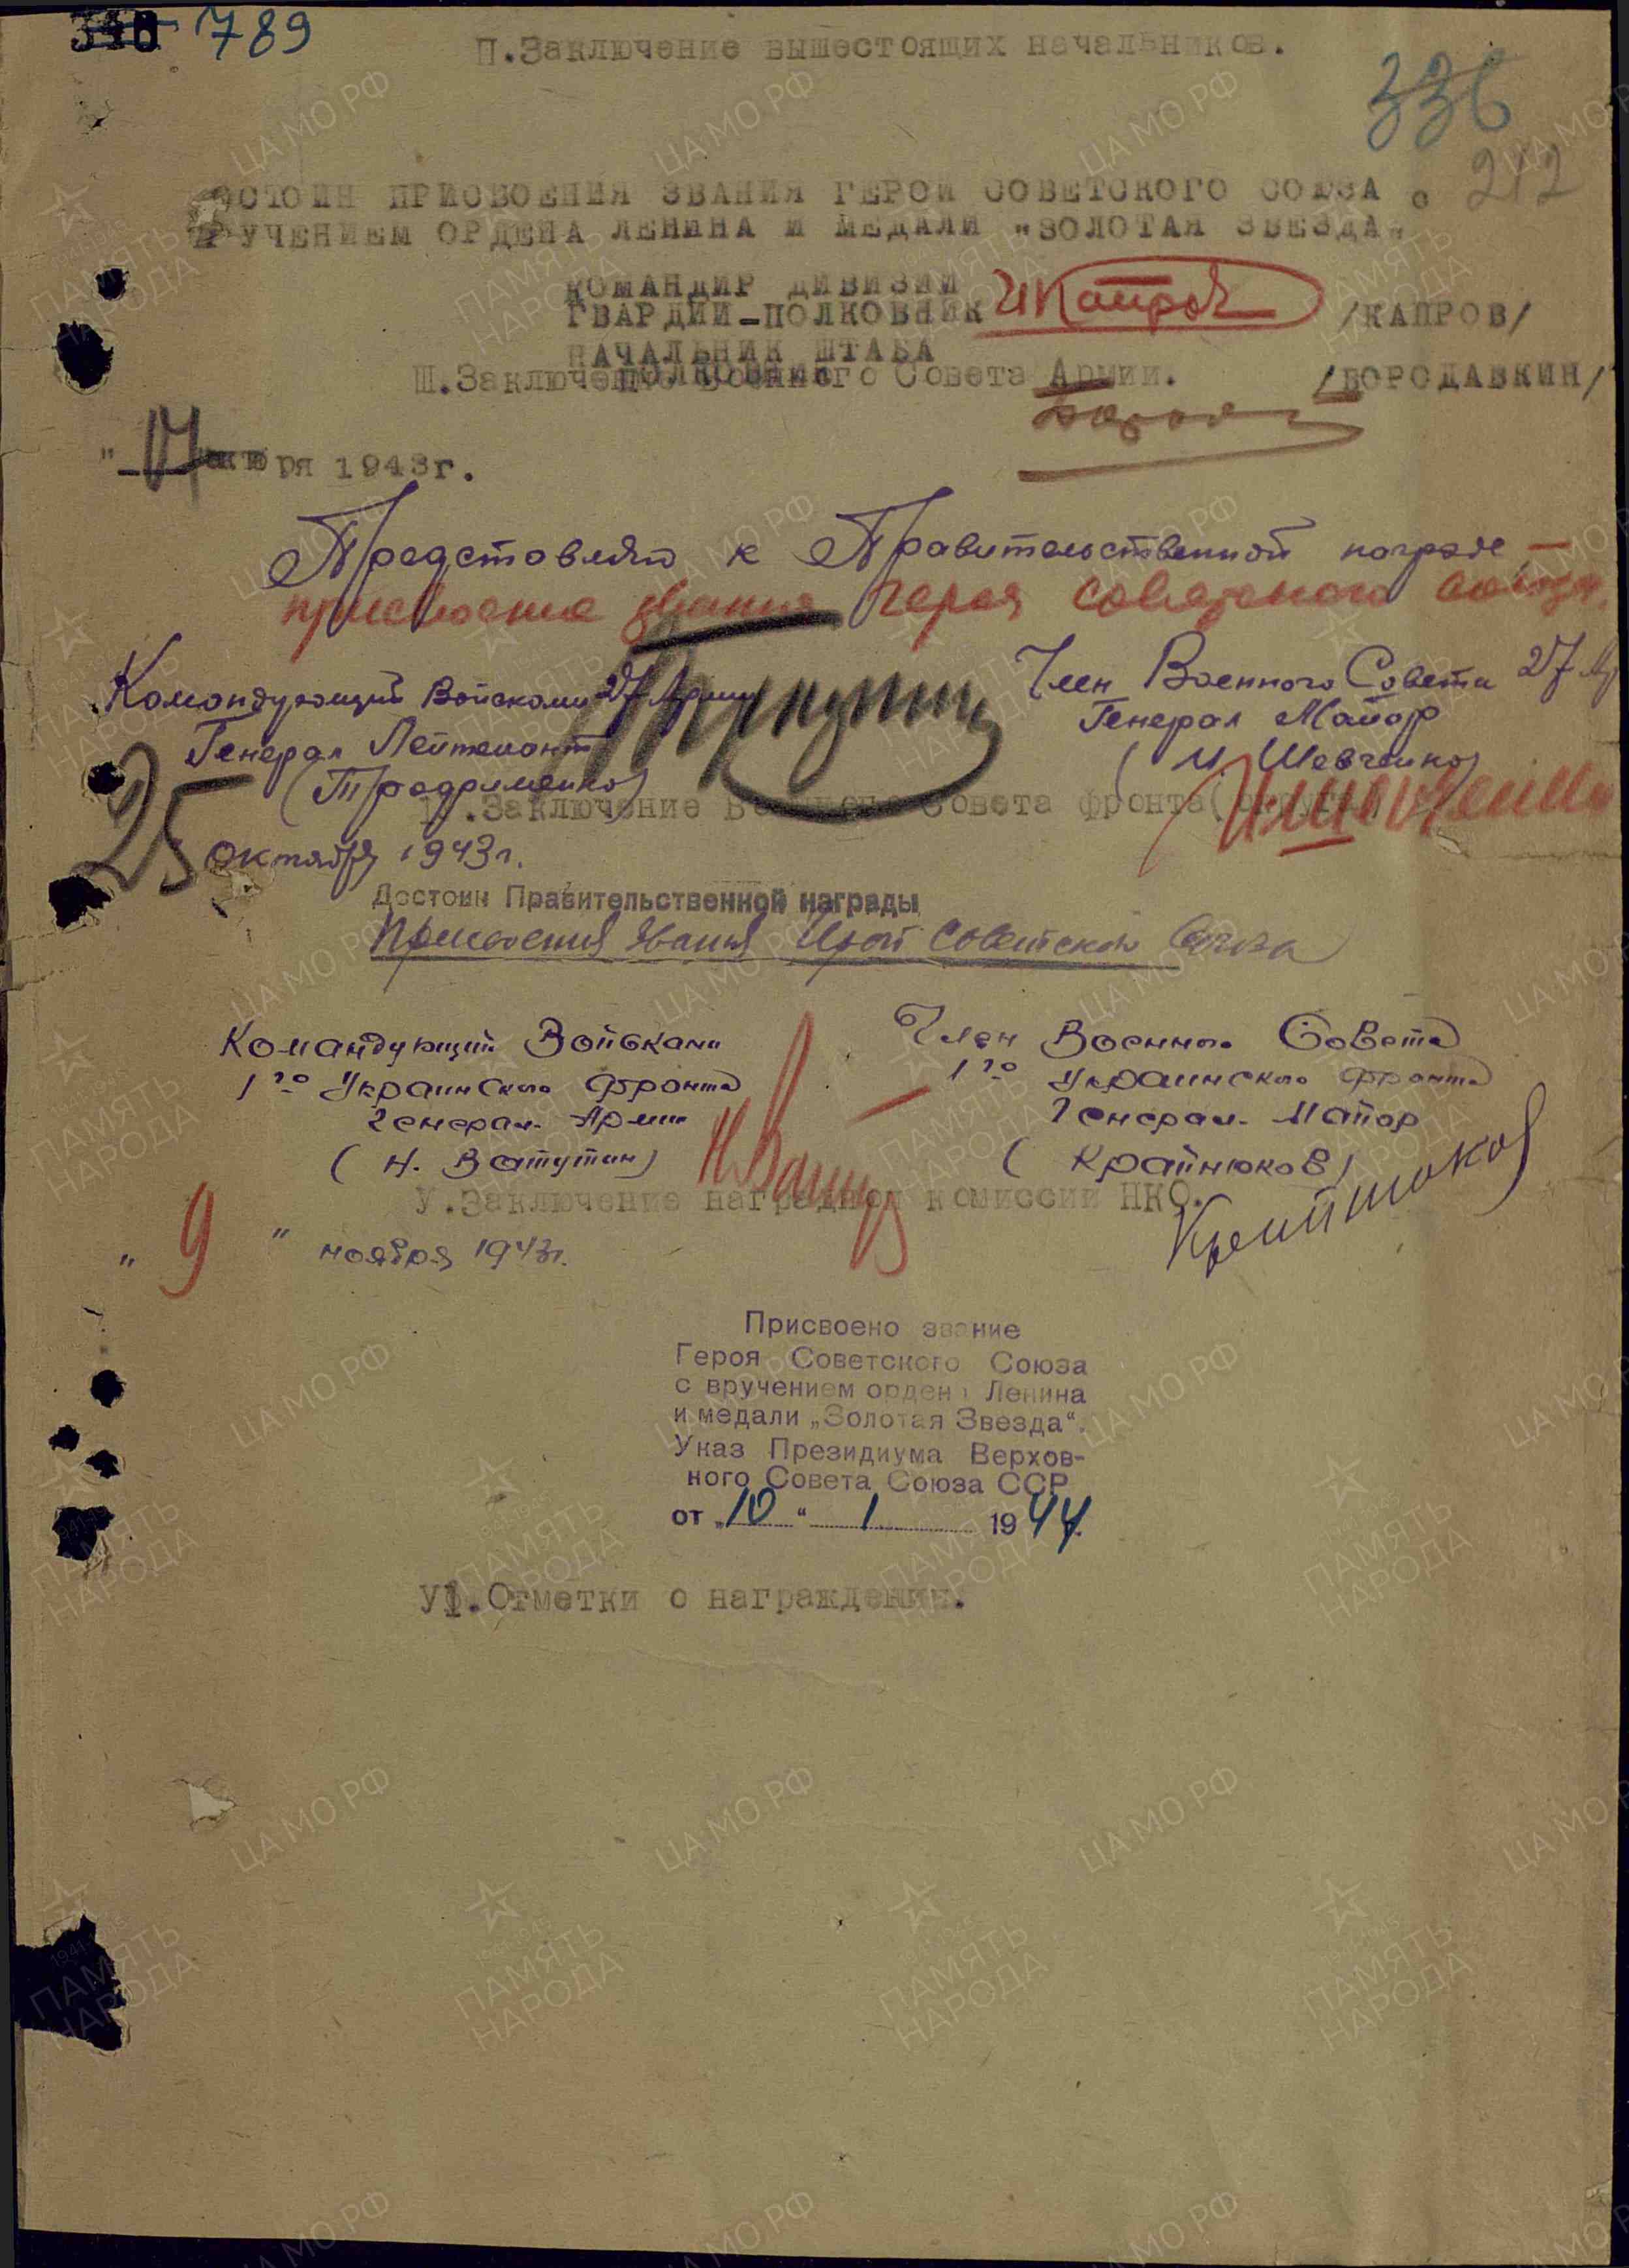 789
П.Заключение вышестоящих начальников.
336
212
ДОСТОИН ПРИСВОЕНИЯ ЗВАНИЯ ГЕРОЙ СОВЕТСКОГО СОЮЗА с
ВРУЧЕНИЕМ ОРДЕНА ЛЕНИНА И МЕДАЛИ „ЗОЛОТАЯ ЗВЕЗДА„
КОМАНДИР ДИВИЗИИ
ГВАРДИИ-ПОЛКОВНИК ИКапров /КАПРОВ/
НАЧАЛЬНИК ШТАБА
ПОЛКОВНИК /БОРОДАВКИН/
Ш.Заключение Военного Совета Армии.
"17 октября 1943г.
Представляю к Правительственной награде —
присвоение звания героя советского союза.
Командующий Войсками 27 Армии
Генерал Лейтенант
(Трофименко)
Член Военного Совета 27
Генерал Майор
(И Шевченко)
.Заключение Военного Совета фронта(округа)
25 октября 1943г.
Достоин Правительственной награды
Присвоения звания Герой Советского Союза
Командующий Войсками
1го Украинского Фронта
Генерал Армии
(Н. Ватутин)
Член Военного Совета
1го Украинского Фронта
Генерал-Майор
(Крайнюков)
Крайнюков
У.Заключение наградной комиссии НКО.
"9" ноября 1943г.
Присвоено звание
Героя Советского Союза
с вручением ордена Ленина
и медали „Золотая Звезда“.
Указ Президиума Верхов-
ного Совета Союза ССР
от „10“ 1 1944.
У1.Отметки о награждении.
ЦА МО РФ
ПАМЯТЬ
НАРОДА